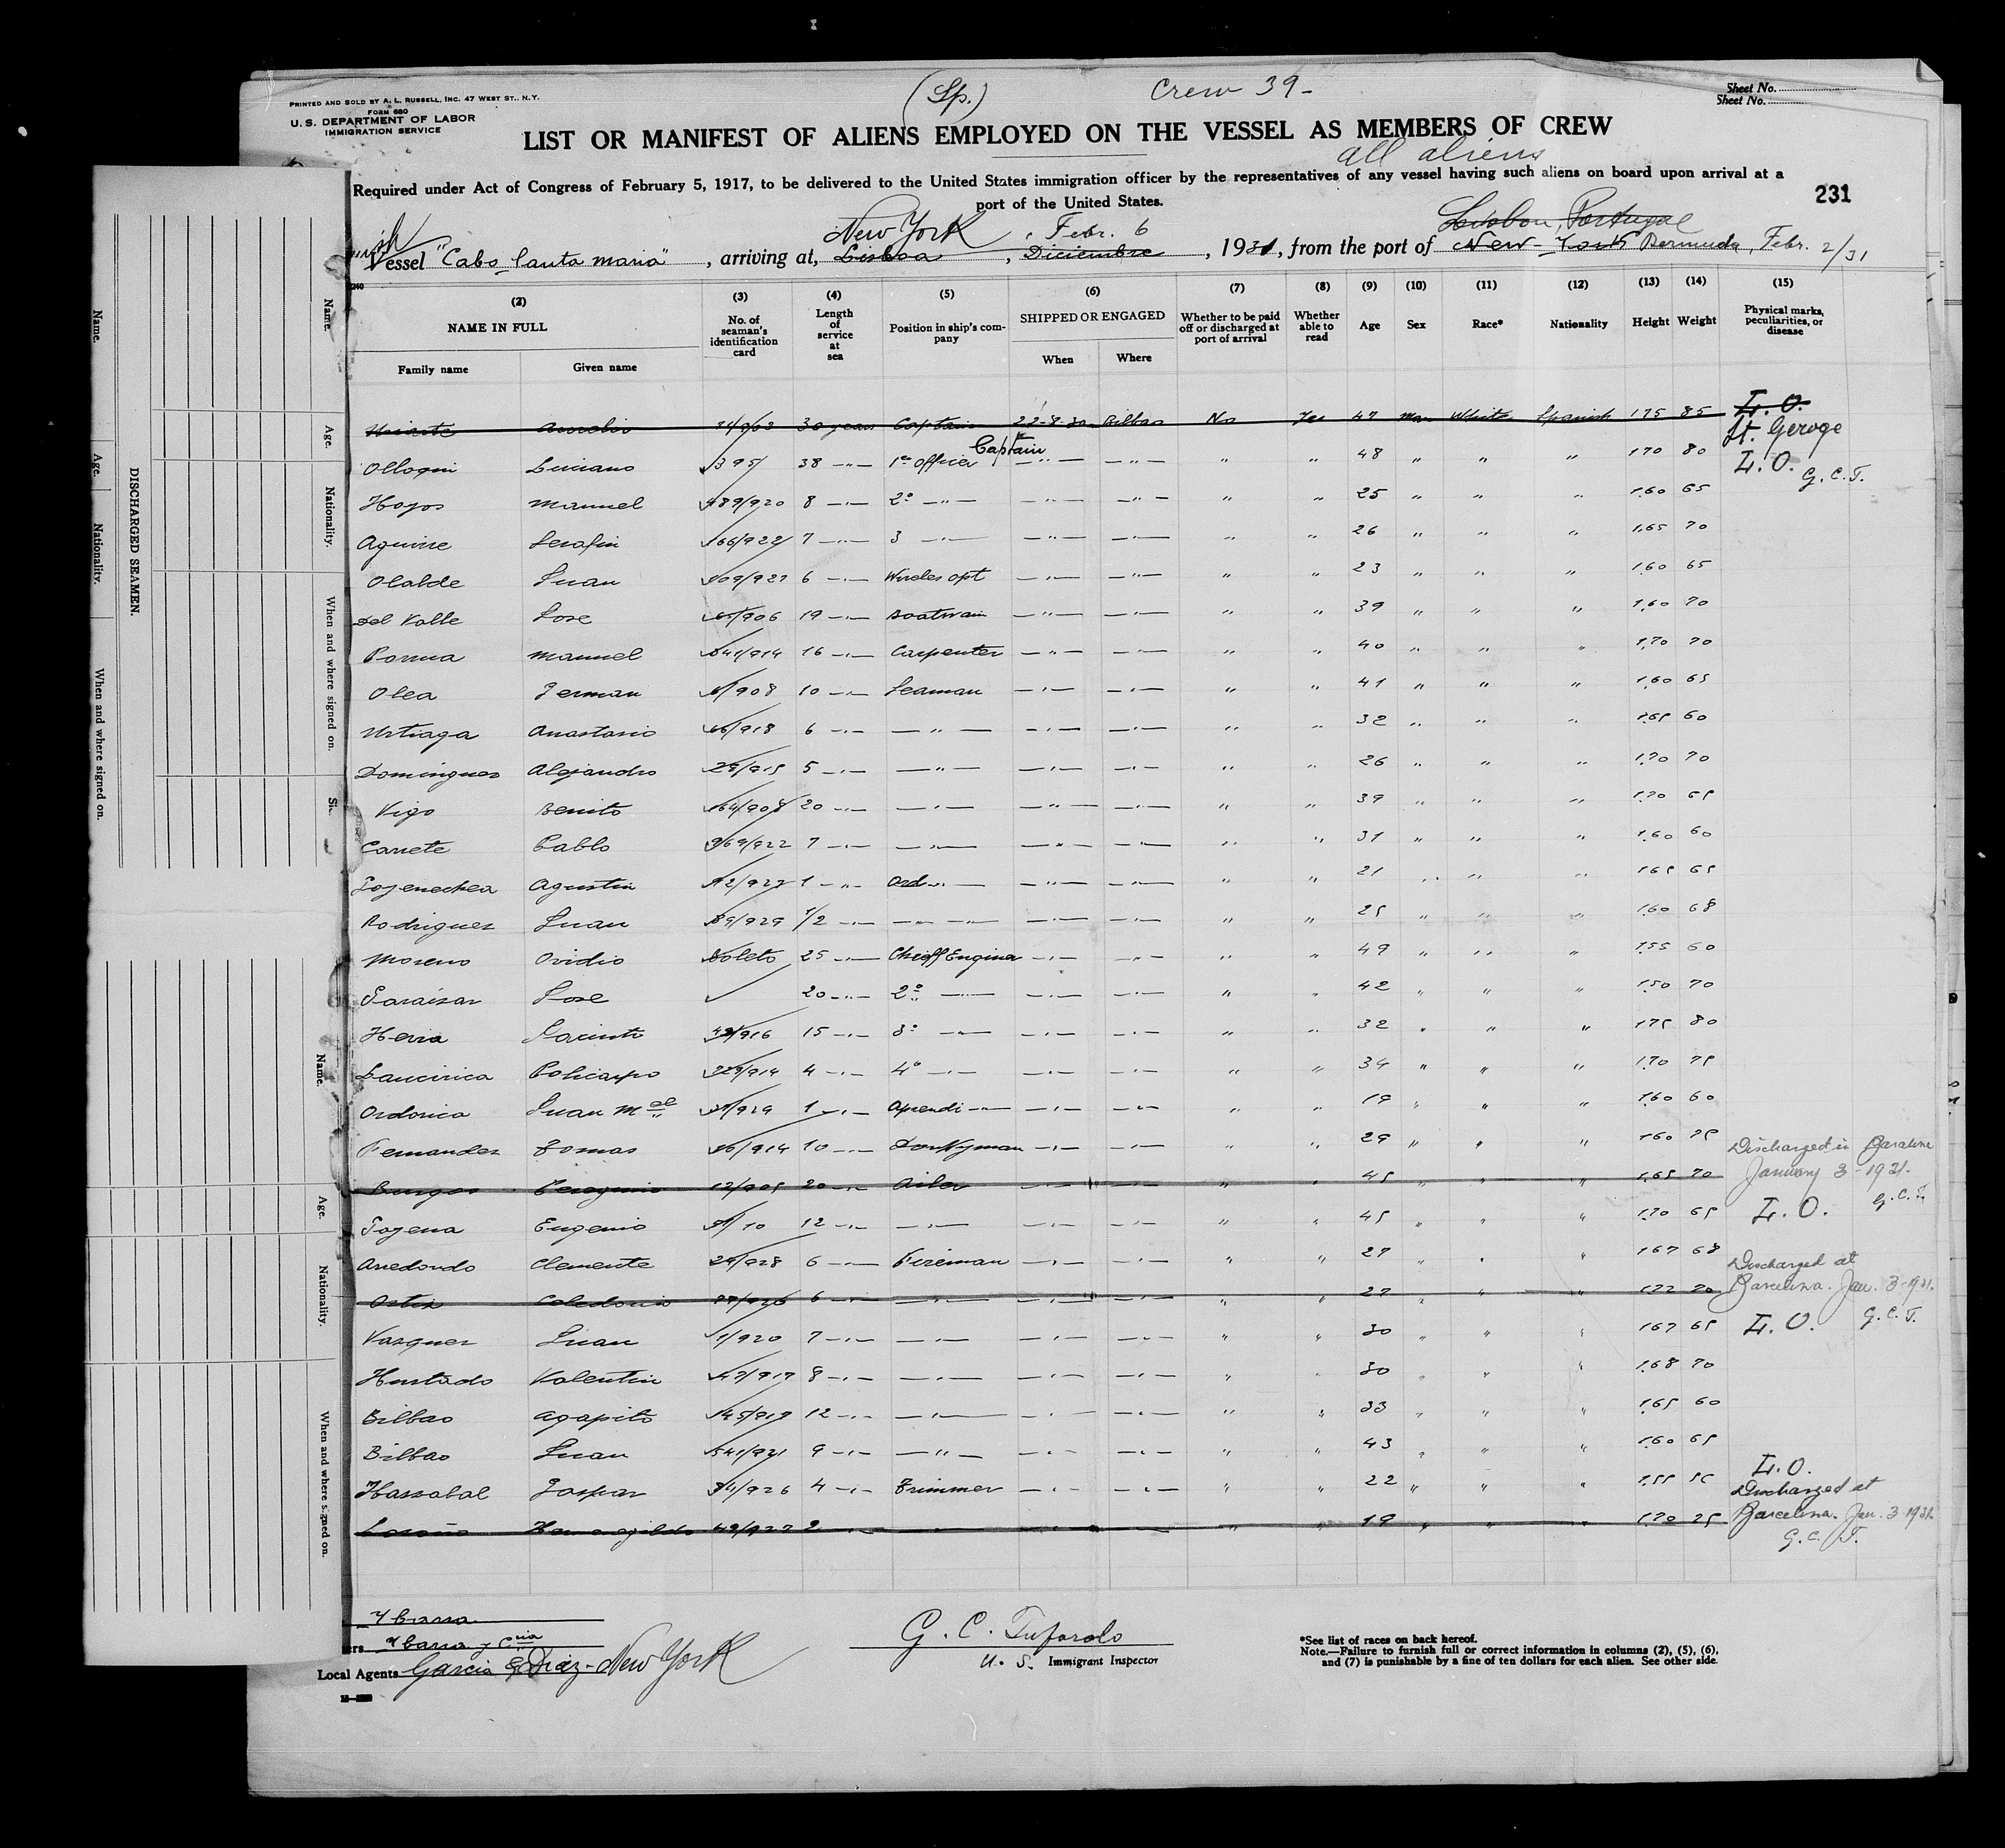 PRINTED AND SOLD BY A. L. RUSSELL, INC. 47 WEST ST., N.Y.
FORM 680
U. S. DEPARTMENT OF LABOR
IMMIGRATION SERVICE
(Sp.)
Crew 39-
Sheet No.
Sheet No.
LIST OR MANIFEST OF ALIENS EMPLOYED ON THE VESSEL AS MEMBERS OF CREW
all aliens
Required under Act of Congress of February 5, 1917, to be delivered to the United States immigration officer by the representatives of any vessel having such aliens on board upon arrival at a
port of the United States.
231
New York Febr. 6 Lisbon, Portugal
Vessel "Cabo Santa Maria", arriving at, Lisboa, Diciembre, 1931, from the port of New York Bermuda, Febr. 2/31
(2) (3) (4) (5) (6) (7) (8) (9) (10) (11) (12) (13) (14) (15)
NAME IN FULL
Family name Given name
No. of seaman's identification card
Length of service at sea
Position in ship's company
SHIPPED OR ENGAGED
When Where
Whether to be paid off or discharged at port of arrival
Whether able to read
Age Sex Race* Nationality Height Weight
Physical marks, peculiarities, or disease
Uriarte Aurelio 30 years Captain 22-8-30 Bilbao No Yes 47 Man White Spanish 175 85 L.O.
St. Geroge
Captain
Olloqui Luciano 395/ 38 -"- 1er Officer -"- -"- " " 48 " " " 170 80 L.O. G.C.T.
Hoyos Manuel 89/920 8 -"- 2º -"- -"- -"- " " 25 " " " 1.60 65
Aguirre Serafin 66/922 7 -"- 3 -"- -"- -"- " " 26 " " " 1.65 70
Olalde Juan 109/927 6 -"- Wireles opt -"- -"- " " 23 " " " 1.60 65
Del Valle Jose 19 -"- Boatswain -"- -"- " " 39 " " " 1.60 70
Porrua Manuel 541/914 16 -"- Carpenter -"- -"- " " 40 " " " 1.70 70
Olea German 6/908 10 -"- Seaman -"- -"- " " 41 " " " 1.60 65
Urtiaga Anastasio 66/918 6 -"- -"- -"- -"- " " 32 " " " 1.65 60
Dominguez Alejandro 29/915 5 -"- -"- -"- -"- " " 26 " " " 1.70 70
Vigo Benito 164/908 20 -"- -"- -"- -"- " " 39 " " " 1.70 65
Canete Pablo 369/922 7 -"- -"- -"- -"- " " 31 " " " 1.60 60
Goyenechea Agustin 12/927 1 -"- Ord -"- -"- -"- " " 21 " " " 165 65
Rodriguez Juan 89/929 1/2 -"- -"- -"- -"- " " 25 " " " 1.60 68
Moreno Ovidio Boleto 25 -"- Chieff Enginer -"- -"- " " 49 " " " 1.55 60
Garaizar Jose 20 -"- 2º -"- -"- -"- " " 42 " " " 1.50 70
Hevia Jacinto 15 -"- 3º -"- -"- -"- " " 32 " " " 175 80
Laucirica Policarpo 229/914 4 -"- 4º -"- -"- -"- " " 34 " " " 1.70 75
Ordorica Juan Mel 1 -"- Aprendi -"- -"- -"- " " 19 " " " 1.60 60
Fernandez Tomas 16/914 10 -"- Donkyman -"- -"- " " 29 " " " 1.60 75
Burgos Peregrino 12/905 20 -"- Oiler -"- -"- " " 45 " " " 1.65 70
Discharged in
January 3-1931. G.C.T.
Goyena Eugenio 12 -"- -"- -"- -"- " " 45 " " " 1.70 65 L.O.
Arredondo Clemente 24/928 6 -"- Fireman -"- -"- " " 27 " " " 1.67 68
Ortiz Celedonio 6 -"- -"- -"- -"- " " 27 " " " 70
Discharged at
Barcelona. Jan. 3-1931. G.C.T.
Vazquez Juan 1/920 7 -"- -"- -"- -"- " " 30 " " " 167 65 L.O.
Hurtado Valentin 8 -"- -"- -"- -"- " " 30 " " " 1.68 70
Bilbao Agapito 12 -"- -"- -"- -"- " " 33 " " " 1.65 60
Bilbao Juan 541/921 9 -"- -"- -"- -"- " " 43 " " " 1.60 65
Gaspar 4 -"- Trimmer -"- -"- " " 22 " " " 1.55 L.O.
2 -"- -"- " " 19 " " " 1.70
Discharged at
Barcelona. Jan. 3-1931.
G.C.T.
Ybarra
Ybarra y Cia
Local Agents Garcia & Diaz - New York
G. C. Tuforolo
U. S. Immigrant Inspector
*See list of races on back hereof.
Note.—Failure to furnish full or correct information in columns (2), (5), (6),
and (7) is punishable by a fine of ten dollars for each alien. See other side.
DISCHARGED SEAMEN.
Name. Age. Nationality. When and where signed on.
Name. Age. Nationality. When and where signed on.
Name. Age. Nationality. When and where signed on.